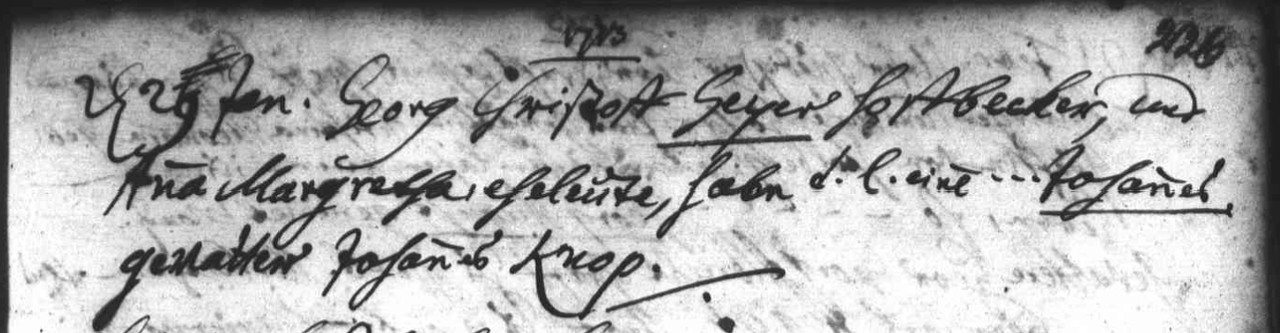 1713
Jan. Georg Christoff Geyer Hoffbecker, und
Aña Margretha, eheleüte, habn d. l. eine ... Johañes
gevatter Johañes Knop.